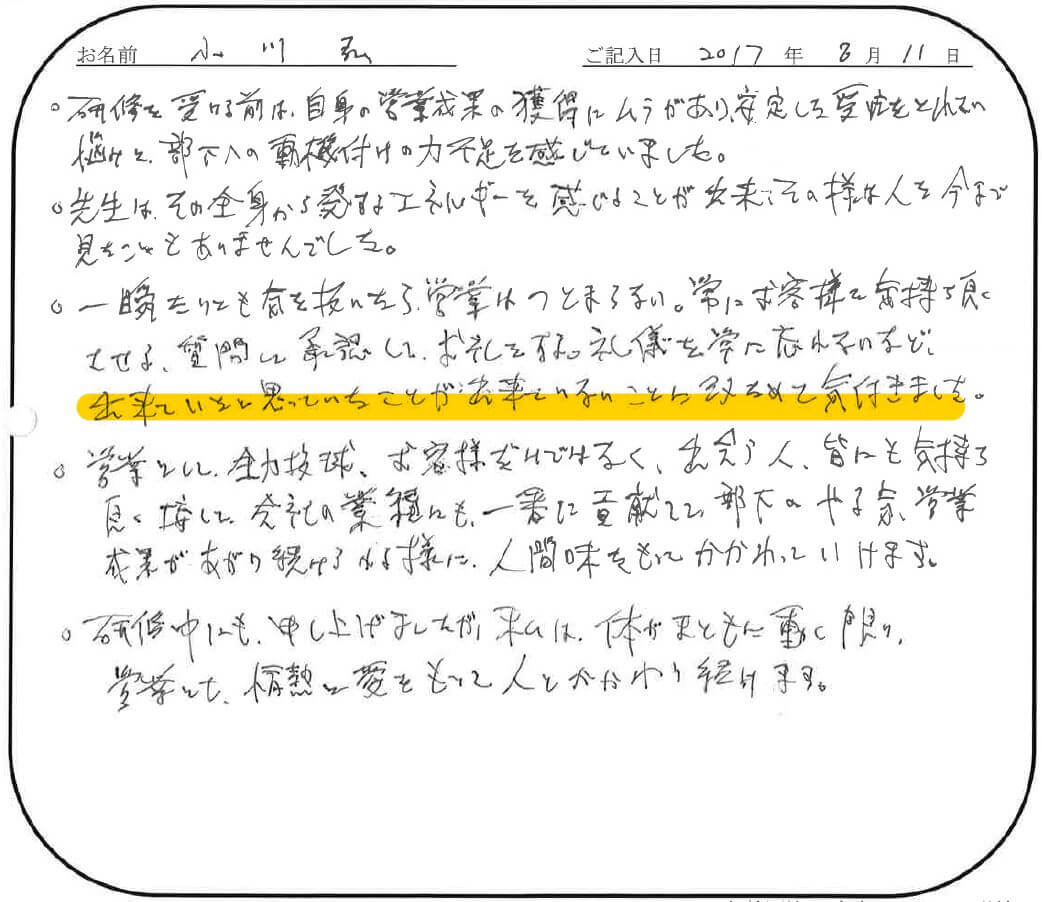 お名前 小川 弘 ご記入日 2017年 8月 11日
○研修を受ける前は、自身の営業成果の獲得にムラがあり、安定した受注をとれない
悩みと、部下への動機付けの力不足を感じていました。
○先生は、その全身から発するエネルギーを感じることが出来てその様な人を今まで
見たこともありませんでした。
○一瞬たりとも気を抜いたら、営業はつとまらない。常にお客様を気持ち良く
させる、質問して承認して、お礼をする。礼儀を常に忘れないなど、
出来ていたと思っていたことが出来ていないことに改めて気付きました。
○営業として、全力投球、お客様だけではなく、出会う人、皆にも気持ち
良く接して、会社の業績にも、一番に貢献して、部下のやる気、営業
成果があがり続けられる様に、人間味をもってかかわっていけます。
○研修中にも、申し上げましたが、私は、体がまともに動く限り、
営業として、情熱と愛をもって人とかかわり続けます。